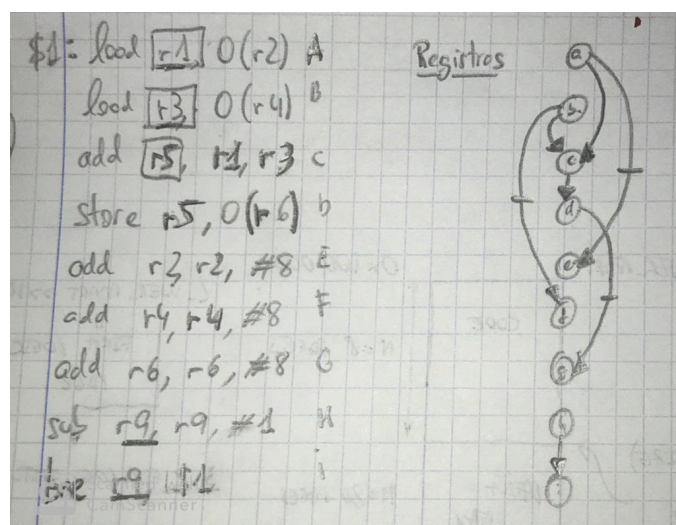 $1: load r1 0(r2) A
load r3, 0(r4) B
add r5, r1, r3 C
store r5, 0(r6) D
add r2, r2, #8 E
add r4, r4, #8 F
add r6, r6, #8 G
sub r9, r9, #1 H
r9 $1 i
Registros
a
b
c
d
e
f
g
h
i
CamScanner